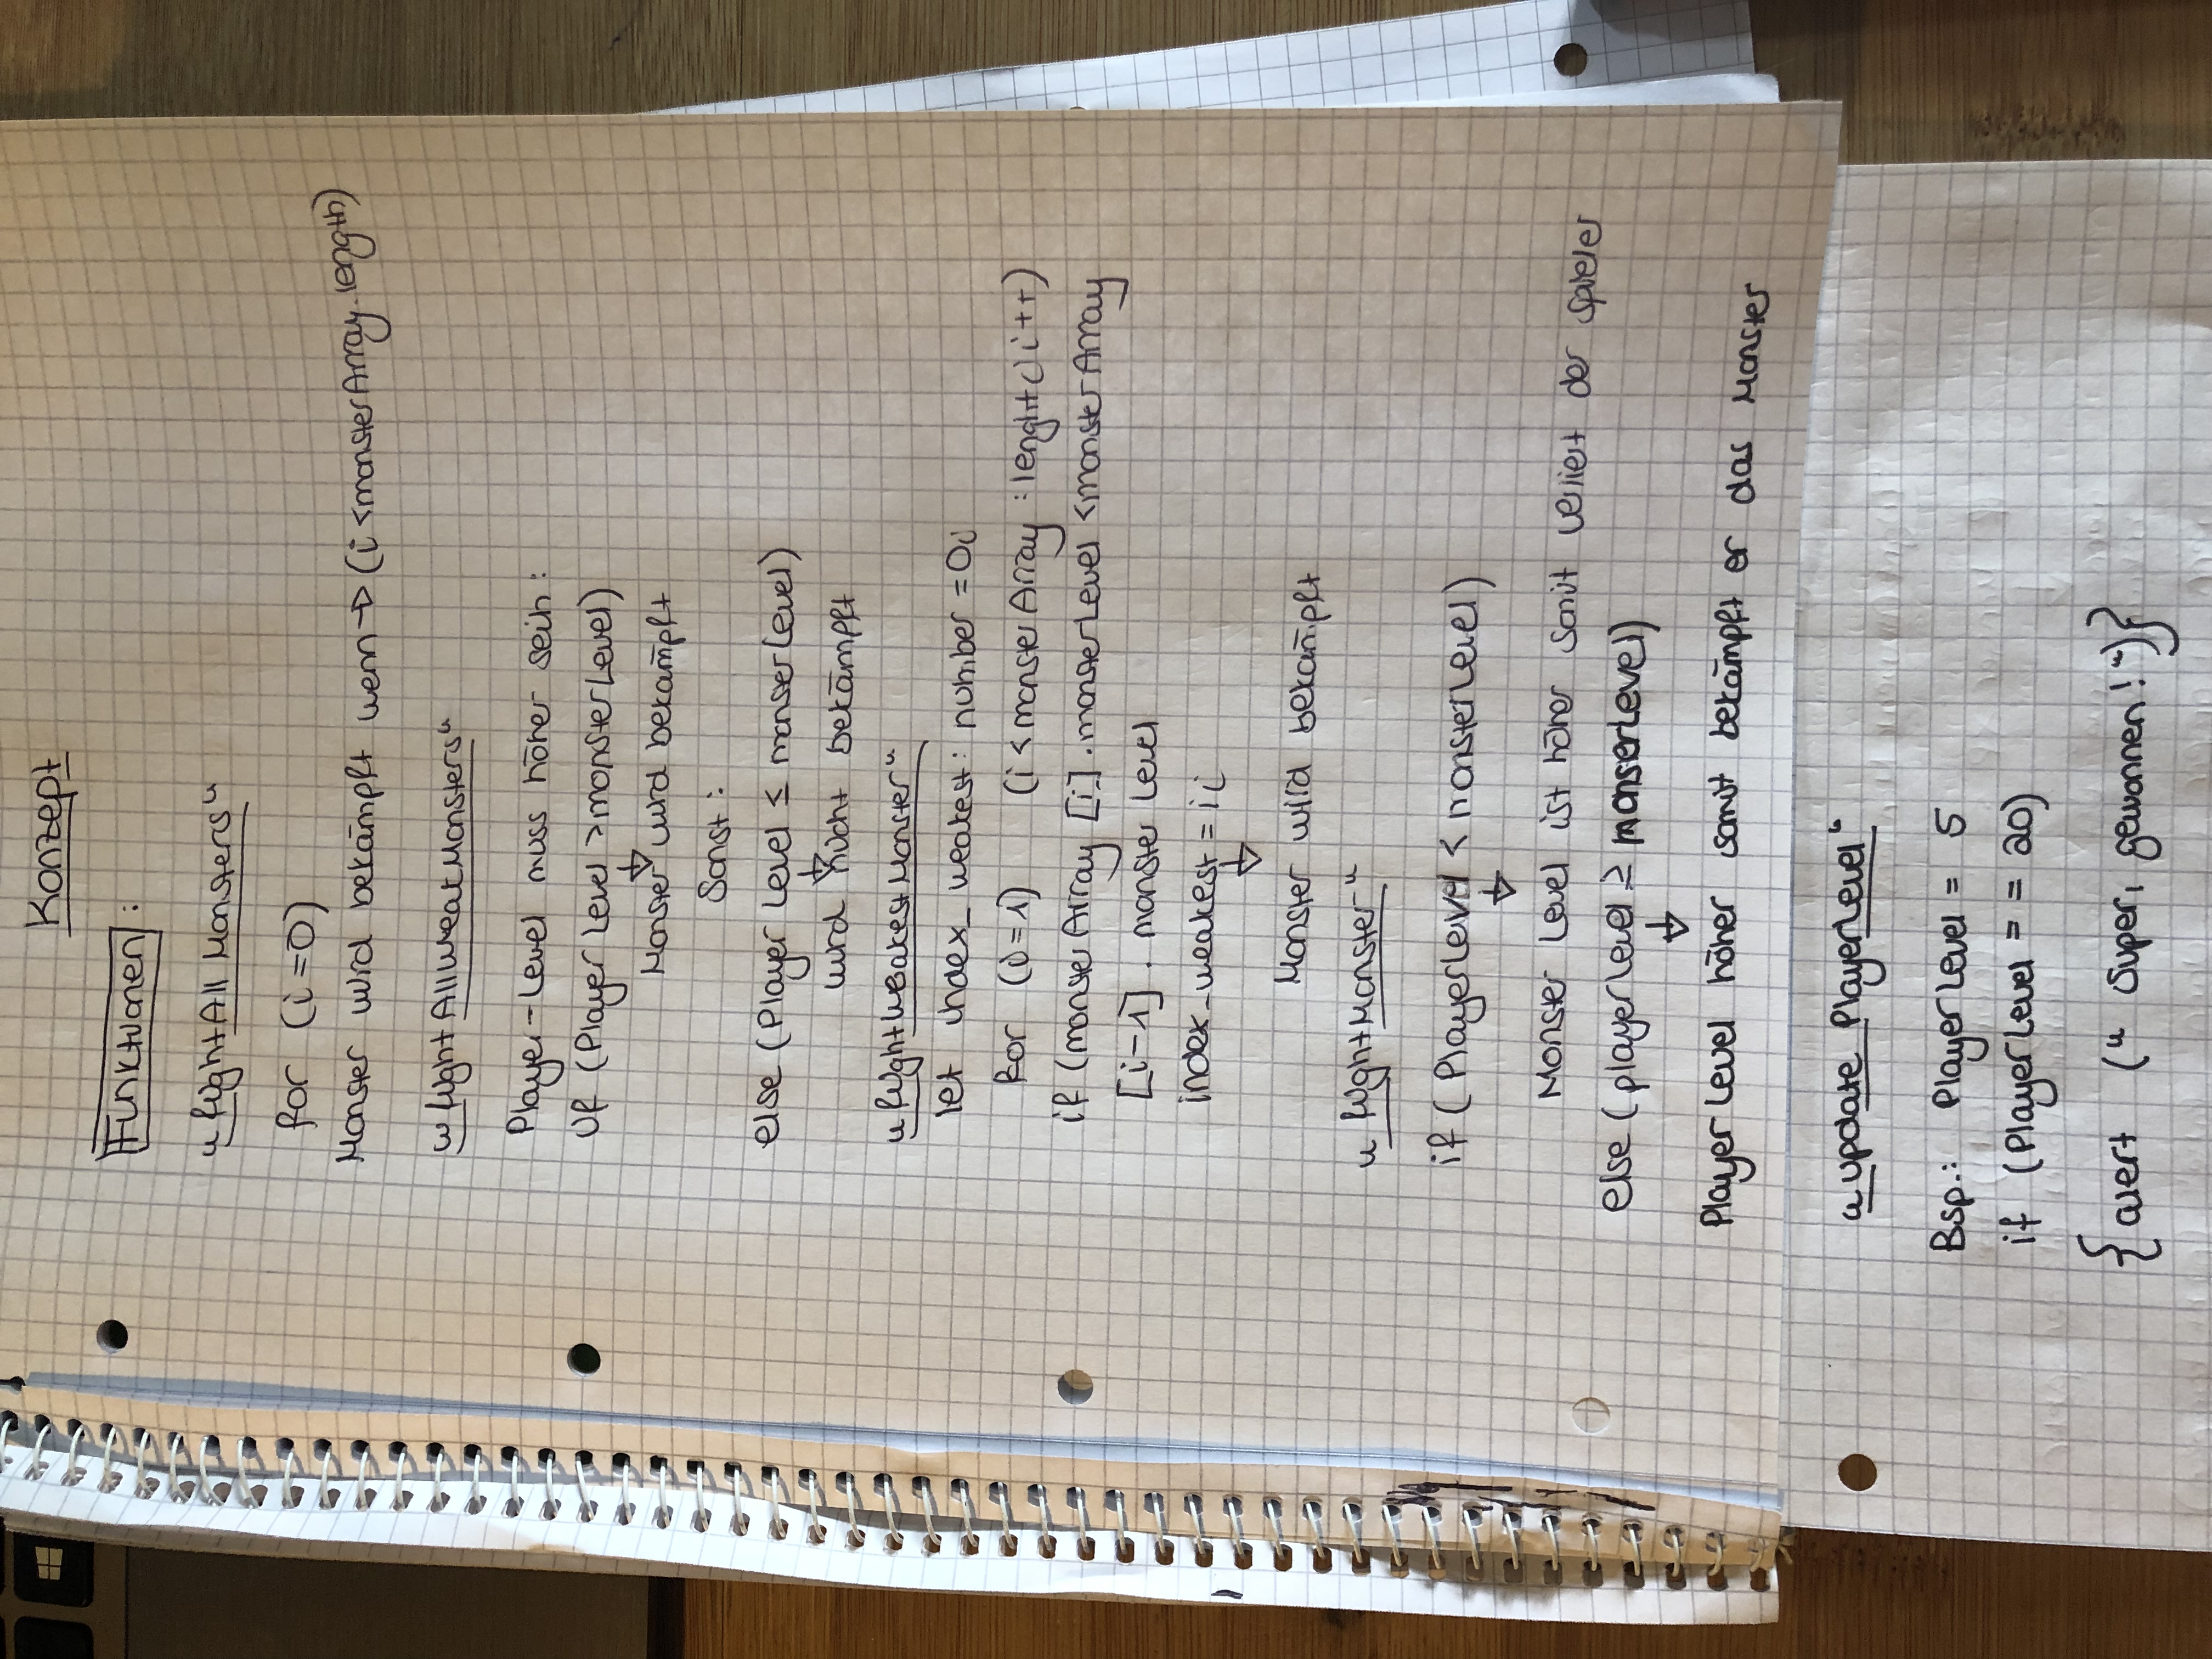 Konzept
Funktionen :
"fightAllMonsters"
for (i=0)
Monster wird bekämpft wenn → (i <monsterArray.length)
"fightAllWeakMonsters"
Player-Level muss höher sein :
if (Player Level >monsterLevel)
↓
Monster wird bekämpft
Sonst :
else (Player Level ≤ monserLevel)
↓
wird nicht bekämpft
"fightWeakestMonster"
let index_weakest: number =0;
for (i=1) (i <monsterArray : lenght; i++)
if (monsterArray [i].monsterLevel <monsterArray
[i-1] . monster Level
index_weakest = i;
↓
Monster wird bekämpft
"fightMonster"
if ( PlayerLevel < monsterLevel)
↓
Monster Level ist höher somit verliert der Spieler
else ( playerLevel ≥ monserLevel)
↓
Player Level höher somit bekämpft er das Monster
"update PlayerLevel"
Bsp.: PlayerLevel = 5
if (PlayerLevel = = 20)
{alert (" Super, gewonnen ! ")}